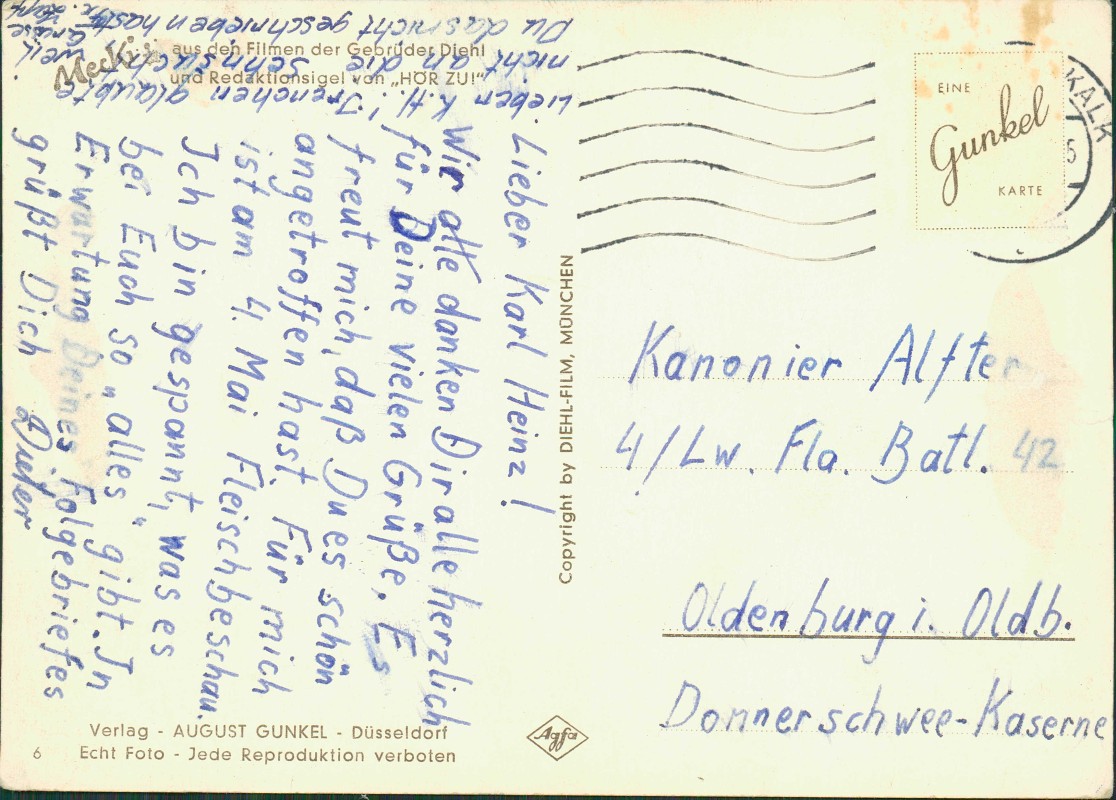 Mecki aus den Filmen der Gebrüder Diehl
und Redaktionsigel von „HÖR ZU!“
Lieber Karl Heinz!
Wir alle danken Dir alle herzlich
für Deine vielen Grüße. Es
freut mich, daß Du es schön
angetroffen hast. Für mich
ist am 4. Mai Fleischbeschau.
Ich bin gespannt, was es
bei Euch so „alles“ gibt. In
Erwartung Deines Folgebriefes
grüßt Dich Dieter
Lieber K.H.! Irenchen glaubte
nicht an die Sehnsucht, weil
Du das nicht geschrieben hast.
Grüße
Verlag - AUGUST GUNKEL - Düsseldorf
6 Echt Foto - Jede Reproduktion verboten
Copyright by DIEHL-FILM, MÜNCHEN
Agfa
EINE
Gunkel
KARTE
KALK
5
Kanonier Alfter
4/Lw. Fla. Batl. 42
Oldenburg i. Oldb.
Donnerschwee-Kaserne